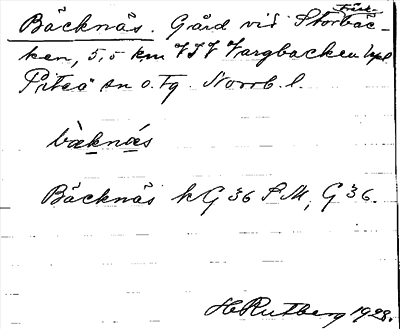 Bäcknäs. Gård vid Storbäc-
ken, 5,5 km VSV Vargbacken kpl
Piteå sn o. Tg. Norrb. l.
bàknás
Bäcknäs kG 36 SM, G 36.
H Rutberg 1928.